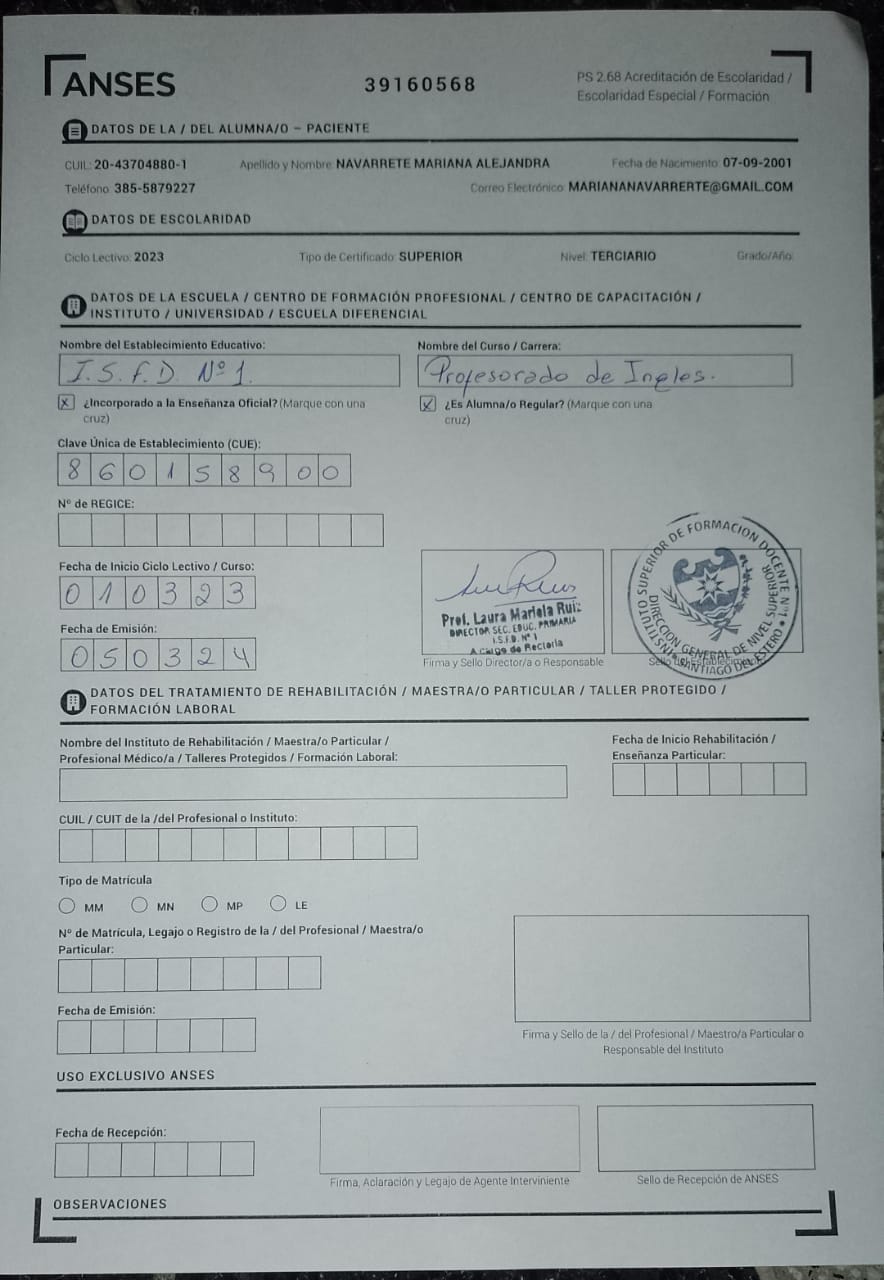 ANSES
39160568
PS 2.68 Acreditación de Escolaridad /
Escolaridad Especial / Formación
DATOS DE LA / DEL ALUMNA/O – PACIENTE
CUIL: 20-43704880-1 Apellido y Nombre: NAVARRETE MARIANA ALEJANDRA Fecha de Nacimiento: 07-09-2001
Teléfono: 385-5879227 Correo Electrónico: MARIANANAVARRERTE@GMAIL.COM
DATOS DE ESCOLARIDAD
Ciclo Lectivo: 2023 Tipo de Certificado: SUPERIOR Nivel: TERCIARIO Grado/Año:
DATOS DE LA ESCUELA / CENTRO DE FORMACIÓN PROFESIONAL / CENTRO DE CAPACITACIÓN /
INSTITUTO / UNIVERSIDAD / ESCUELA DIFERENCIAL
Nombre del Establecimiento Educativo: Nombre del Curso / Carrera:
I.S.F.D. Nº1. Profesorado de Ingles.
X ¿Incorporado a la Enseñanza Oficial? (Marque con una X ¿Es Alumna/o Regular? (Marque con una
cruz) cruz)
Clave Única de Establecimiento (CUE):
860158900
Nº de REGICE:
Fecha de Inicio Ciclo Lectivo / Curso:
010323
Fecha de Emisión:
050324
Prof. Laura Mariela Ruiz
DIRECTOR SEC. EDUC. PRIMARIA
I.S.F.D. Nº 1
A Cargo de Rectoría
Firma y Sello Director/a o Responsable
INSTITUTO SUPERIOR DE FORMACION DOCENTE Nº1
DIRECCION GENERAL DE NIVEL SUPERIOR
SANTIAGO DEL ESTERO
DATOS DEL TRATAMIENTO DE REHABILITACIÓN / MAESTRA/O PARTICULAR / TALLER PROTEGIDO /
FORMACIÓN LABORAL
Nombre del Instituto de Rehabilitación / Maestra/o Particular /
Profesional Médico/a / Talleres Protegidos / Formación Laboral:
Fecha de Inicio Rehabilitación /
Enseñanza Particular:
CUIL / CUIT de la /del Profesional o Instituto:
Tipo de Matrícula
MM MN MP LE
Nº de Matrícula, Legajo o Registro de la / del Profesional / Maestra/o
Particular:
Fecha de Emisión:
Firma y Sello de la / del Profesional / Maestro/a Particular o
Responsable del Instituto
USO EXCLUSIVO ANSES
Fecha de Recepción:
Firma, Aclaración y Legajo de Agente Interviniente
Sello de Recepción de ANSES
OBSERVACIONES